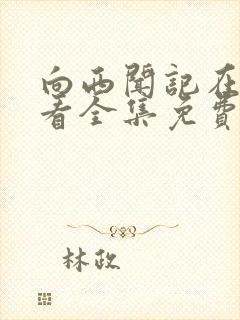 向西闻记在
看全集免费
林政